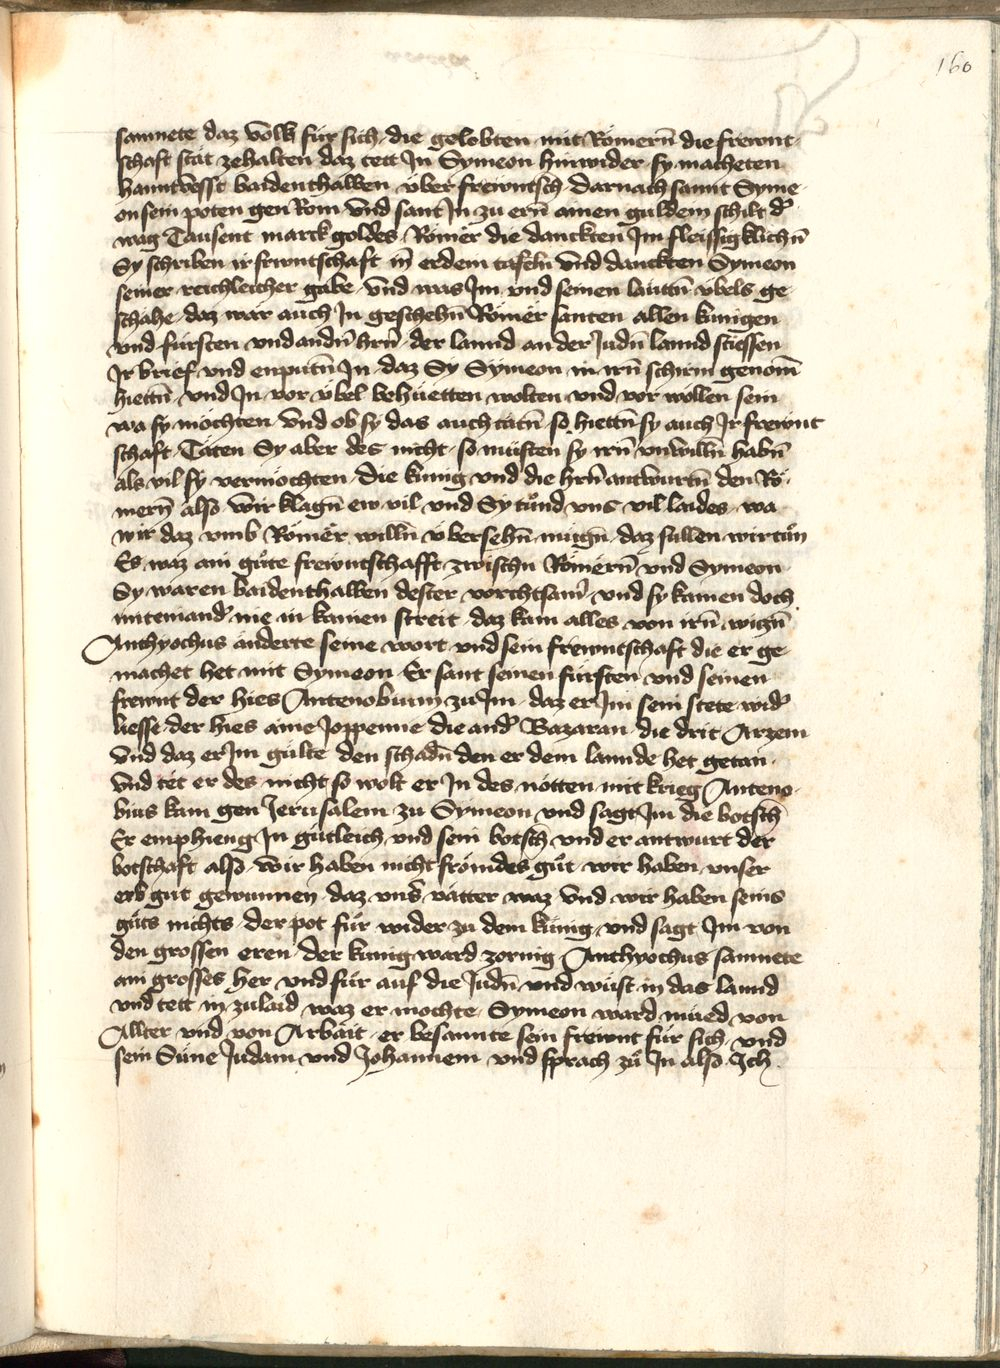 160
samnete daz volk für sich die gelobten mit Römern̄ die frewnt
schaft stät zehalten daz tett Jn Symeon hinwider sy macheten
hanntvesst baidenthalben über frewntsch darnach sannt Syme
on sein poten gen Rom vnd sant Jn zu ern̄ ainen guldein schilt d̉
wag Tausent marck goldes Römer die danckten Jm fleissigklichn̄
Sy schriben ir frewntschaft in erdein tafeln vnd danckten Symeon
seiner reichleicher gabe vnd was Jm vnd seinen lauttn̄ vbels ge
schahe daz war auch Jn geschehn̄ Römer santen allen kunigen
vnd fursten vnd andn̄ hrn̄ der lannd an der Judn̄ lannd stiessen
Jr brief vnd enputn̄ Jn daz Sy Symeon in irn̄ schirm genom̄
hiettn̄ vnd Jn vor übel behüetten wolten vnd vor wollen sein
wa sy möchten vnd ob sy das auch tätn̄ so hiettn̄ sy auch Jr frewnt
schaft Täten Sy aber des nicht so müsten sy irn̄ vnwilln̄ habn̄
als vil sy vermöchten die kunig vnd die hrn̄ antwurtn̄ den Rö
mern̄ also wir klagn̄ ew vil vnd Sy tůnd vns vil laides wa
wir daz vmb Römer willn̄ übersehn̄ mugn̄ daz sullen wir tůn
Es waz ain gůte frewntschafft zwischn̄ Römern̄ vnd Symeon
Sy waren baidenthalben dester vorchtsam̉ vnd sy kamen doch
miteinand̉ nie in kainen streit daz kam alles von irn̄ wiczn̄
Anthyochus änderte seine wort vnd sein frewntschaft die er ge
machet het mit Symeon Er sant seinen fürsten vnd seinen
frewnt der hies Antenobium zu Jm daz er Jm sein stete wid̉
liesse der hies aine Joppenne die and̉ Bazaran die drit Arzem
vnd daz er Jm gulte den schadn̄ den er dem lannde het getan
vnd tët er des nicht so wolt er Jn des nötten mit krieg Anteno
bius kam gen Jerusalem zu Symeon vnd sagt Jm die botsch
Er emphieng Jn gutleich vnd sein botsch vnd er antwurt der
botschaft also wir haben nicht frömdes gůt wir haben vnser
erb gut gewunnen daz vns̉ vätter waz vnd wir haben seins
gůts nichts der pot fůr wider zu dem künig vnd sagt Jm von
den grossen eren der kunig ward zornig Anthyochus samnete
ain grosses her vnd für auf die Judn̄ vnd wüst in das lannd
vnd tett in zulaid waz er mochte Symeon ward mued von
Allter vnd von Arbait er besannte sein frewnt für sich vnd
sein Süne Judam vnd Johannem vnd sprach zů Jn also Jch